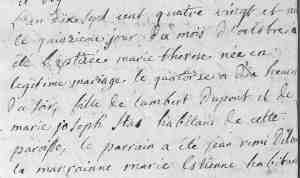 L'an dix sept cent quatre vingt et
le quinzieme jour du mois d'octobre a
eté baptisée marie therese née en
legitime mariage le quatorze a
du soir, fille de lambert Dupont et de
marie joseph Stas habitans de cette
paroisse, le parrain a eté jean remi
la marrainne marie Etienne habitans